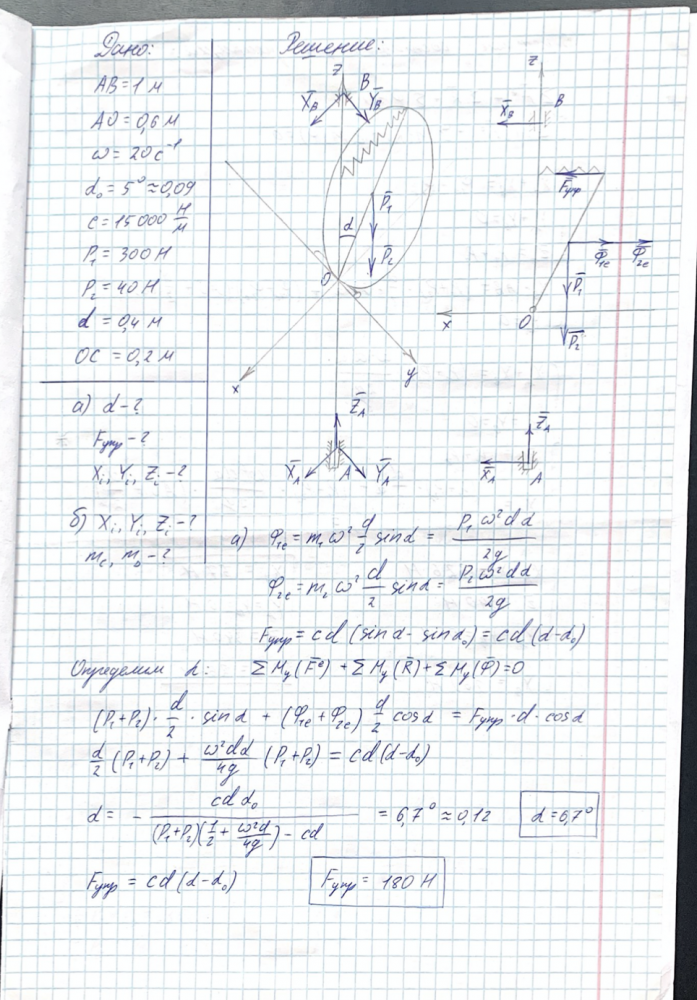 Дано:
AB = 1 м
AO = 0,6 м
ω = 20 с⁻¹
α₀ = 5° ≈ 0,09
c = 15000 Н/м
P₁ = 300 Н
P₂ = 40 Н
d = 0,4 м
OC = 0,2 м
а) α - ?
Fупр - ?
Xᵢ, Yᵢ, Zᵢ - ?
б) Xᵢ, Yᵢ, Zᵢ - ?
Решение:
z
B
X̄_B
Ȳ_B
P̄₁
α
P̄₂
O
x
y
Z̄_A
X̄_A
A
Ȳ_A
z
X̄_B
B
F̄упр
Φ̄₁e
Φ̄₂e
P̄₁
x
O
P̄₂
Z̄_A
X̄_A
A
а) Φ₁e = m₁ω² d/2 sinα = P₁ω²dα/2g
Φ₂e = m₂ω² d/2 sinα = P₂ω²dα/2g
Fупр = cd (sinα - sinα₀) = cd (α - α₀)
Определим α: ΣM_y(F̄ᵉ) + ΣM_y(R̄) + ΣM_y(Φ̄) = 0
(P₁+P₂) · d/2 · sinα + (Φ₁e + Φ₂e) d/2 cosα = Fупр · d · cosα
d/2 (P₁+P₂) + ω²dα/4g (P₁+P₂) = cd (α - α₀)
α = - cdα₀/((P₁+P₂)(1/2 + ω²d/4g) - cd) = 6,7° ≈ 0,12
α = 6,7°
Fупр = cd (α - α₀)
Fупр = 180 Н